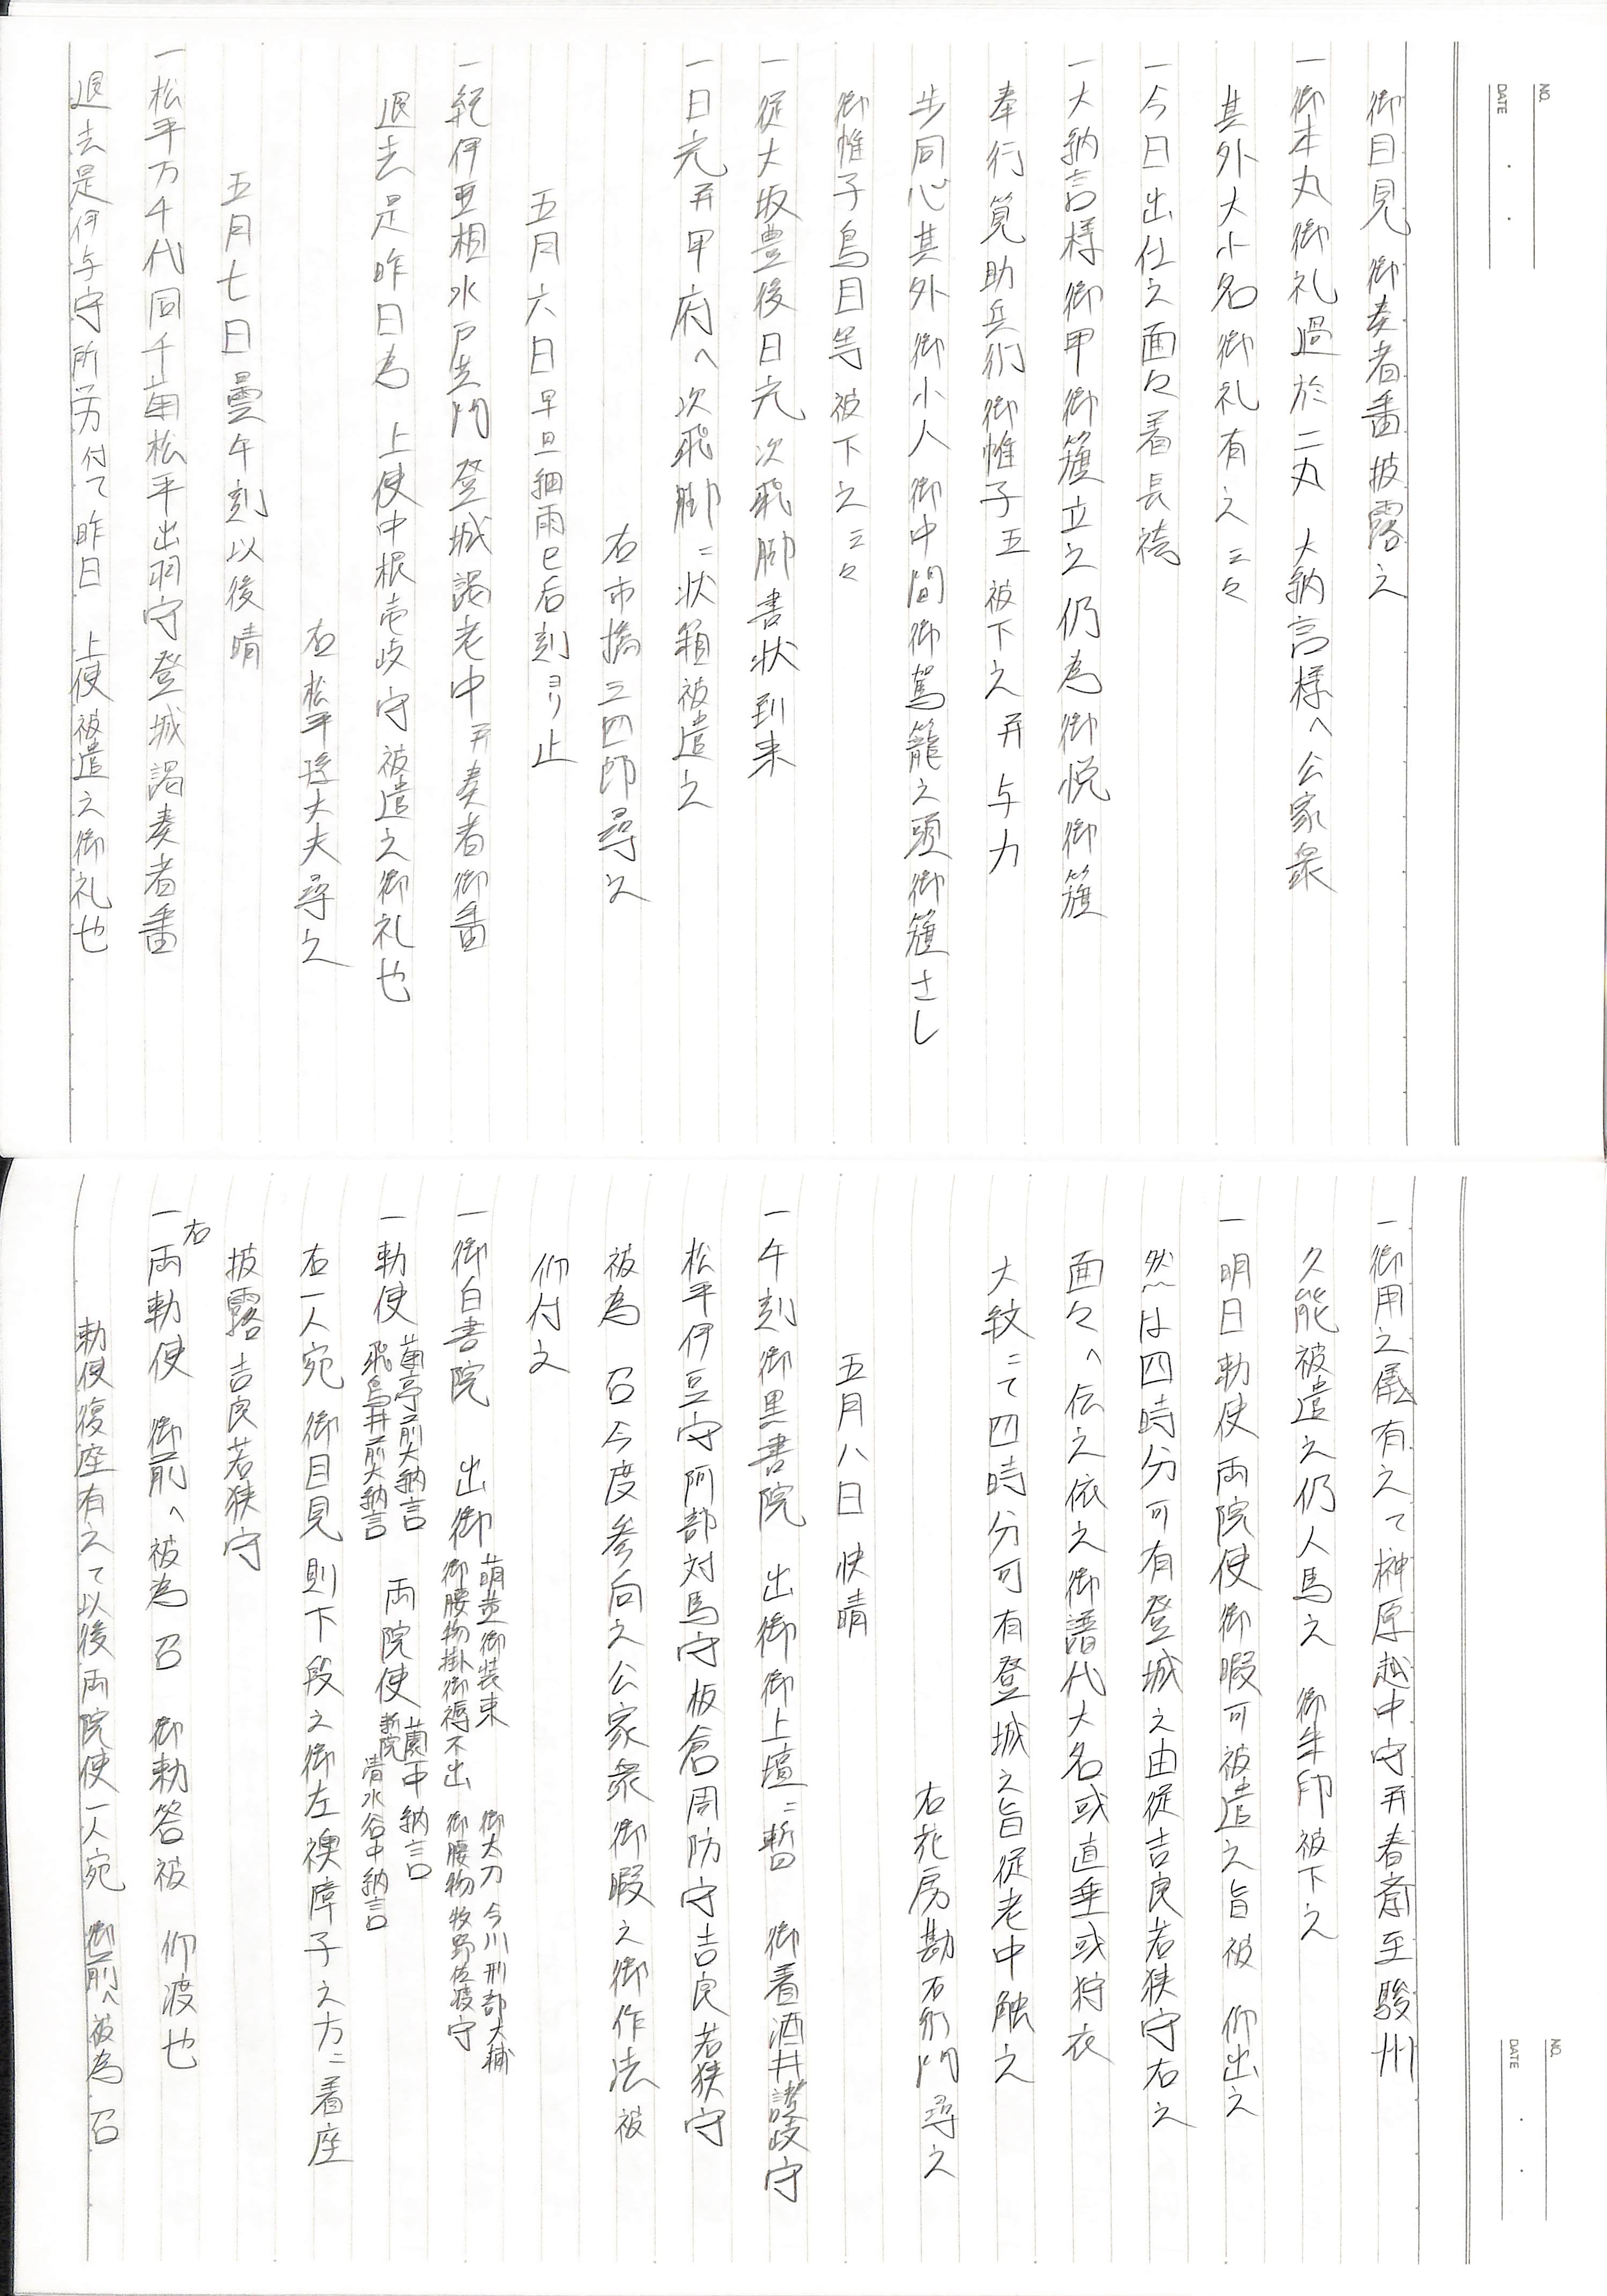 NO.
DATE ・ ・
御目見 御奏者番披露之
一御本丸御礼過於二丸 大納言様へ公家衆
其外大小名御礼有之云々
一今日出仕之面々着長袴
一大納言様御甲御籏立之仍為御悦御籏
奉行筧助兵衛御帷子五被下之并与力
歩同心其外御小人御中間御駕籠之頭御籏さし
御帷子鳥目等被下之云々
一従大坂豊後日光次飛脚書状到来
一日光并甲府へ次飛脚ニ状箱被遣之
右市橋三四郎尋之
五月六日早旦細雨巳后刻ヨリ止
一紀伊亜相水戸黄門登城謁老中并奏者御番
退去是昨日為 上使中根壱岐守被遣之御礼也
右松平隼大夫尋之
五月七日曇午刻以後晴
一松平万千代同千菊松平出羽守登城謁奏者番
退去是伊与守所労付て昨日 上使被遣之御礼也
NO.
DATE ・ ・
一御用之儀有之て榊原越中守并春斎至駿州
久能被遣之仍人馬之 御朱印被下之
一明日勅使両院使御暇可被遣之旨被 仰出之
然ハは四時分可有登城之由従吉良若狭守右之
面々へ伝之依之御譜代大名或直垂或狩衣
大紋ニて四時分可有登城之旨従老中触之
右花房勘右衛門尋之
五月八日 快晴
一午刻御黒書院 出御御上壇ニ暫 御着酒井讃岐守
松平伊豆守阿部対馬守板倉周防守吉良若狭守
被為 召今度参向之公家衆御暇之御作法被
仰付之
一御白書院 出御 萌黄御装束 御腰物掛御褥不出 御太刀 今川刑部大輔 御腰物 牧野佐渡守
一勅使 菊亭前大納言 飛鳥井前大納言 両院使 薗中納言 新院 清水谷中納言
右一人宛 御目見則下段之御左襖障子之方ニ着座
披露吉良若狭守
一右両勅使 御前へ被為 召 御勅答被 仰渡也
勅使復座有之て以後両院使一人宛 御前へ被為 召